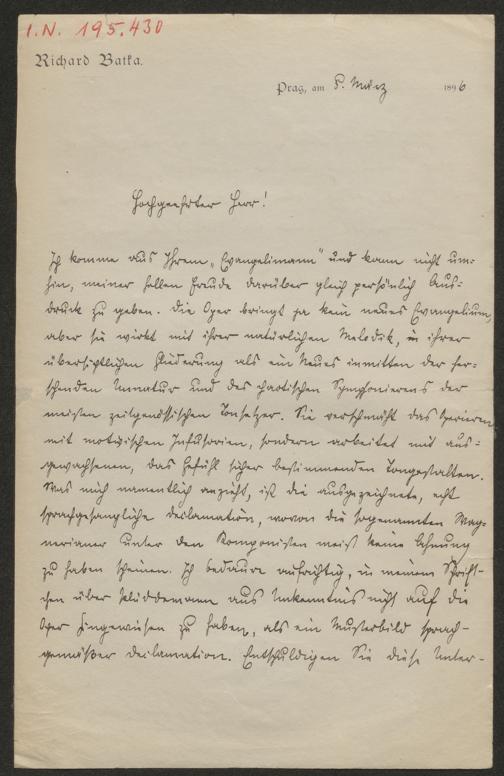 I.N. 195.430
Richard Batka.
Prag, am 8. März 1896
Hochgeehrter Herr!
Ich komme aus Ihrem „Evangelimann“ und kann nicht um-
hin, meiner hellen Freude darüber gleich persönlich Aus-
druck zu geben. Die Oper bringt ja kein neues Evangelium,
aber sie wirkt mit ihrer natürlichen Melodik, in ihrer
übersichtlichen Gliederung als ein Neues inmitten der herr-
schenden Unnatur und des chaotischen Symphonierens der
meisten zeitgenössischen Tonsetzer. Sie verschmäht das
mit motivischen Infusorien, sondern arbeitet mit aus-
gewachsenen, das Gefühl sicher bestimmenden Tongestalten.
Was mich namentlich anzieht, ist die ausgezeichnete, echt
sprachgesangliche Deklamation, wovon die sogenannten Wag-
nerianer unter den Komponisten meist keine Ahnung
zu haben scheinen. Ich bedaure aufrichtig, in meinem Schrift-
chen über Plüddemann aus Unkenntnis nicht auf die
Oper hingewiesen zu haben, als ein Musterbild sprach-
gemäßer Deklamation. Entschuldigen Sie diese Unter-